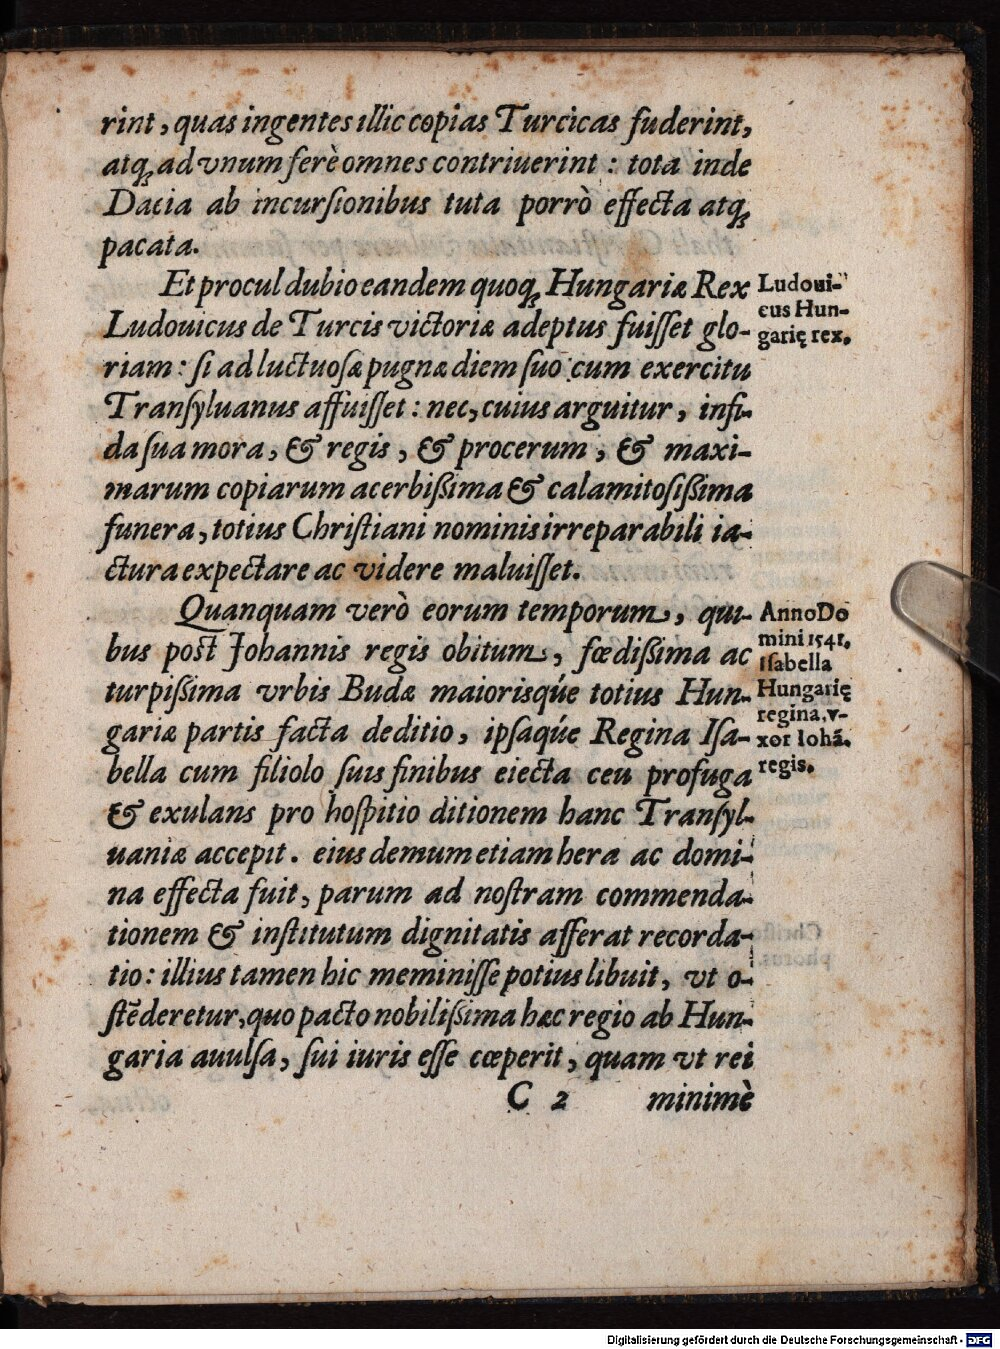 rint, quas ingentes illic copias Turcicas fuderint,
atq; ad vnum ferè omnes contriuerint : tota inde
Dacia ab incurſionibus tuta porrò effecta atq;
pacata.
Et procul dubio eandem quoq; Hungariæ Rex
Ludouicus de Turcis victoriæ adeptus fuiſſet glo-
riam : ſi ad luctuoſæ pugnæ diem ſuo cum exercitu
Tranſyluanus affuiſſet : nec, cuius arguitur, infi-
da ſua mora, & regis, & procerum, & maxi-
marum copiarum acerbißima & calamitoſißima
funera, totius Chriſtiani nominis irreparabili ia-
ctura expectare ac videre maluiſſet.
Ludoui-
cus Hun-
garię rex.
Quanquam verò eorum temporum, qui-
bus poſt Johannis regis obitum, fœdißima ac
turpißima vrbis Budæ maiorisqúe totius Hun-
gariæ partis facta deditio, ipſaqúe Regina Iſa-
bella cum filiolo ſuis finibus eiecta ceu profuga
& exulans pro hoſpitio ditionem hanc Tranſyl-
uaniæ accepit. eius demum etiam hera ac domi-
na effecta fuit, parum ad noſtram commenda-
tionem & inſtitutum dignitatis afferat recorda-
tio : illius tamen hic meminiſſe potius libuit, vt o-
ſtēderetur, quo pacto nobilißima hæc regio ab Hun-
garia auulſa, ſui iuris eſſe cœperit, quam vt rei
Anno Do
mini 1541.
Iſabella
Hungarię
regina, v-
xor Iohā.
regis.
C 2 minimè
Digitalisierung gefördert durch die Deutsche Forschungsgemeinschaft - DFG